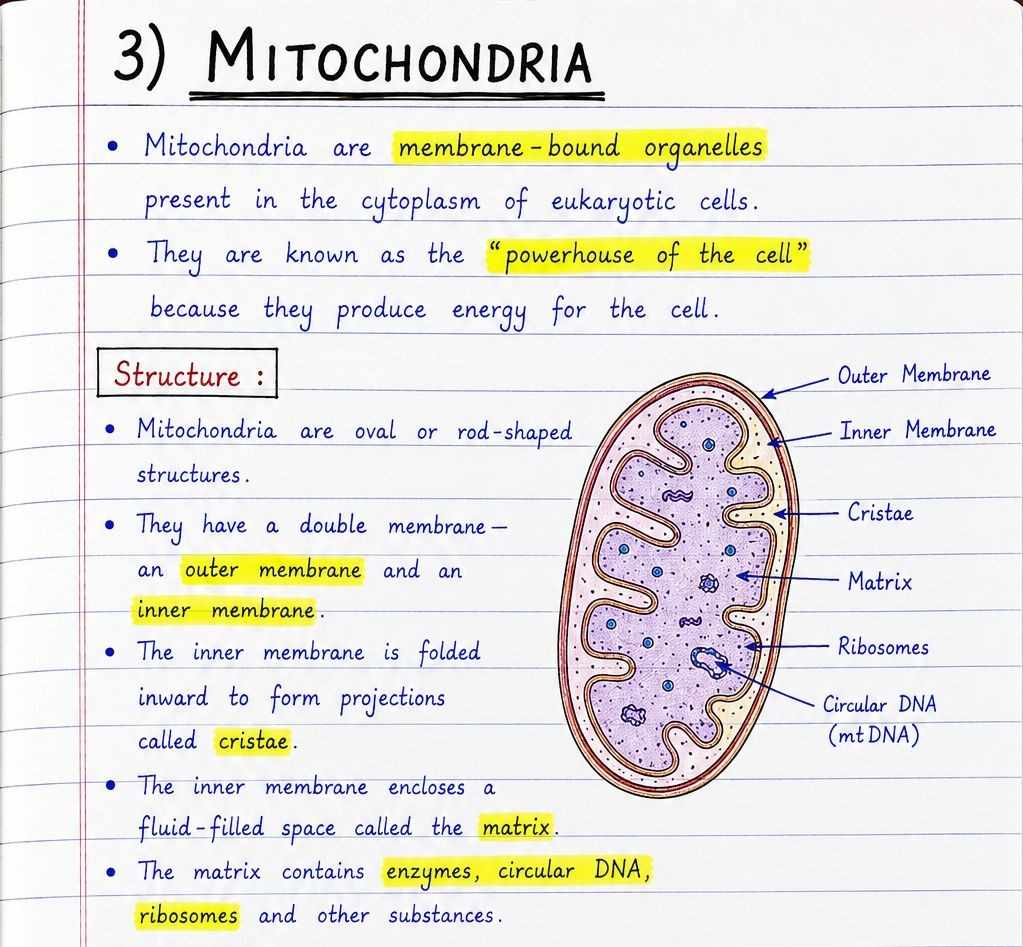 3) MITOCHONDRIA
• Mitochondria are membrane-bound organelles
present in the cytoplasm of eukaryotic cells.
• They are known as the “powerhouse of the cell”
because they produce energy for the cell.
Structure :
• Mitochondria are oval or rod-shaped
structures.
• They have a double membrane—
an outer membrane and an
inner membrane.
• The inner membrane is folded
inward to form projections
called cristae.
• The inner membrane encloses a
fluid-filled space called the matrix.
• The matrix contains enzymes, circular DNA,
ribosomes and other substances.
Outer Membrane
Inner Membrane
Cristae
Matrix
Ribosomes
Circular DNA
(mtDNA)